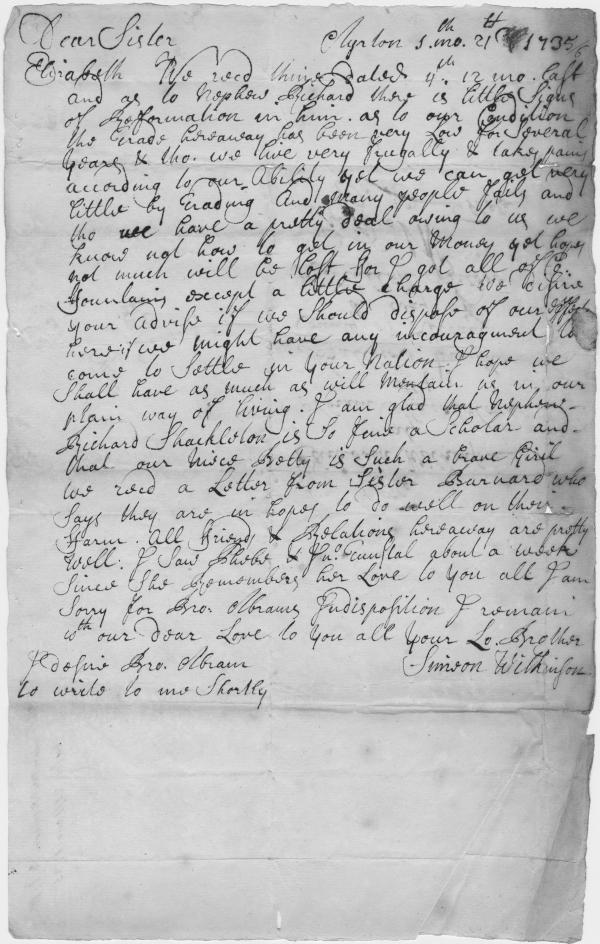 Dear Sister Clyrton 1th. mo. 21th 1735/6
Elizabeth We recd thine dated 4th. 12 mo. last
and as to Nephew Richard there is little Signs
of Reformation in him. as to our Condition
the Trade hereaway has been very Low for Several
Years & tho. we live very frugally & take pains
according to our Ability yet we can get very
little by Trading And many people fails and
tho we have a pretty deal owing to us we
know not how to get in our Money yet hopes
not much will be lost for I got all of
Fountains except a little charge We desire
your advise if we Should dispose of our effects
here if we might have any incouragment to
come to Settle in Your Nation. I hope we
Shall have as much as will Mentain us in our
plain way of living. I am glad that Nephew
Richard Shackleton is So fine a Scholar and
that our Niece Betty is Such a brave Girll
We recd a Letter from Sister Barnard who
Says they are in hopes to do well on their
Farm. All Friends & Relations hereaway are pretty
well. I Saw Phebe & Jno. Tunstal about a week
Since She Remembers her Love to You all I am
Sorry for Bro. Abrams Indisposition I remain
wth our Dear Love to You all Your Lo. Brother
I desire Bro. Abram Simeon Wilkinson
to write to me Shortly